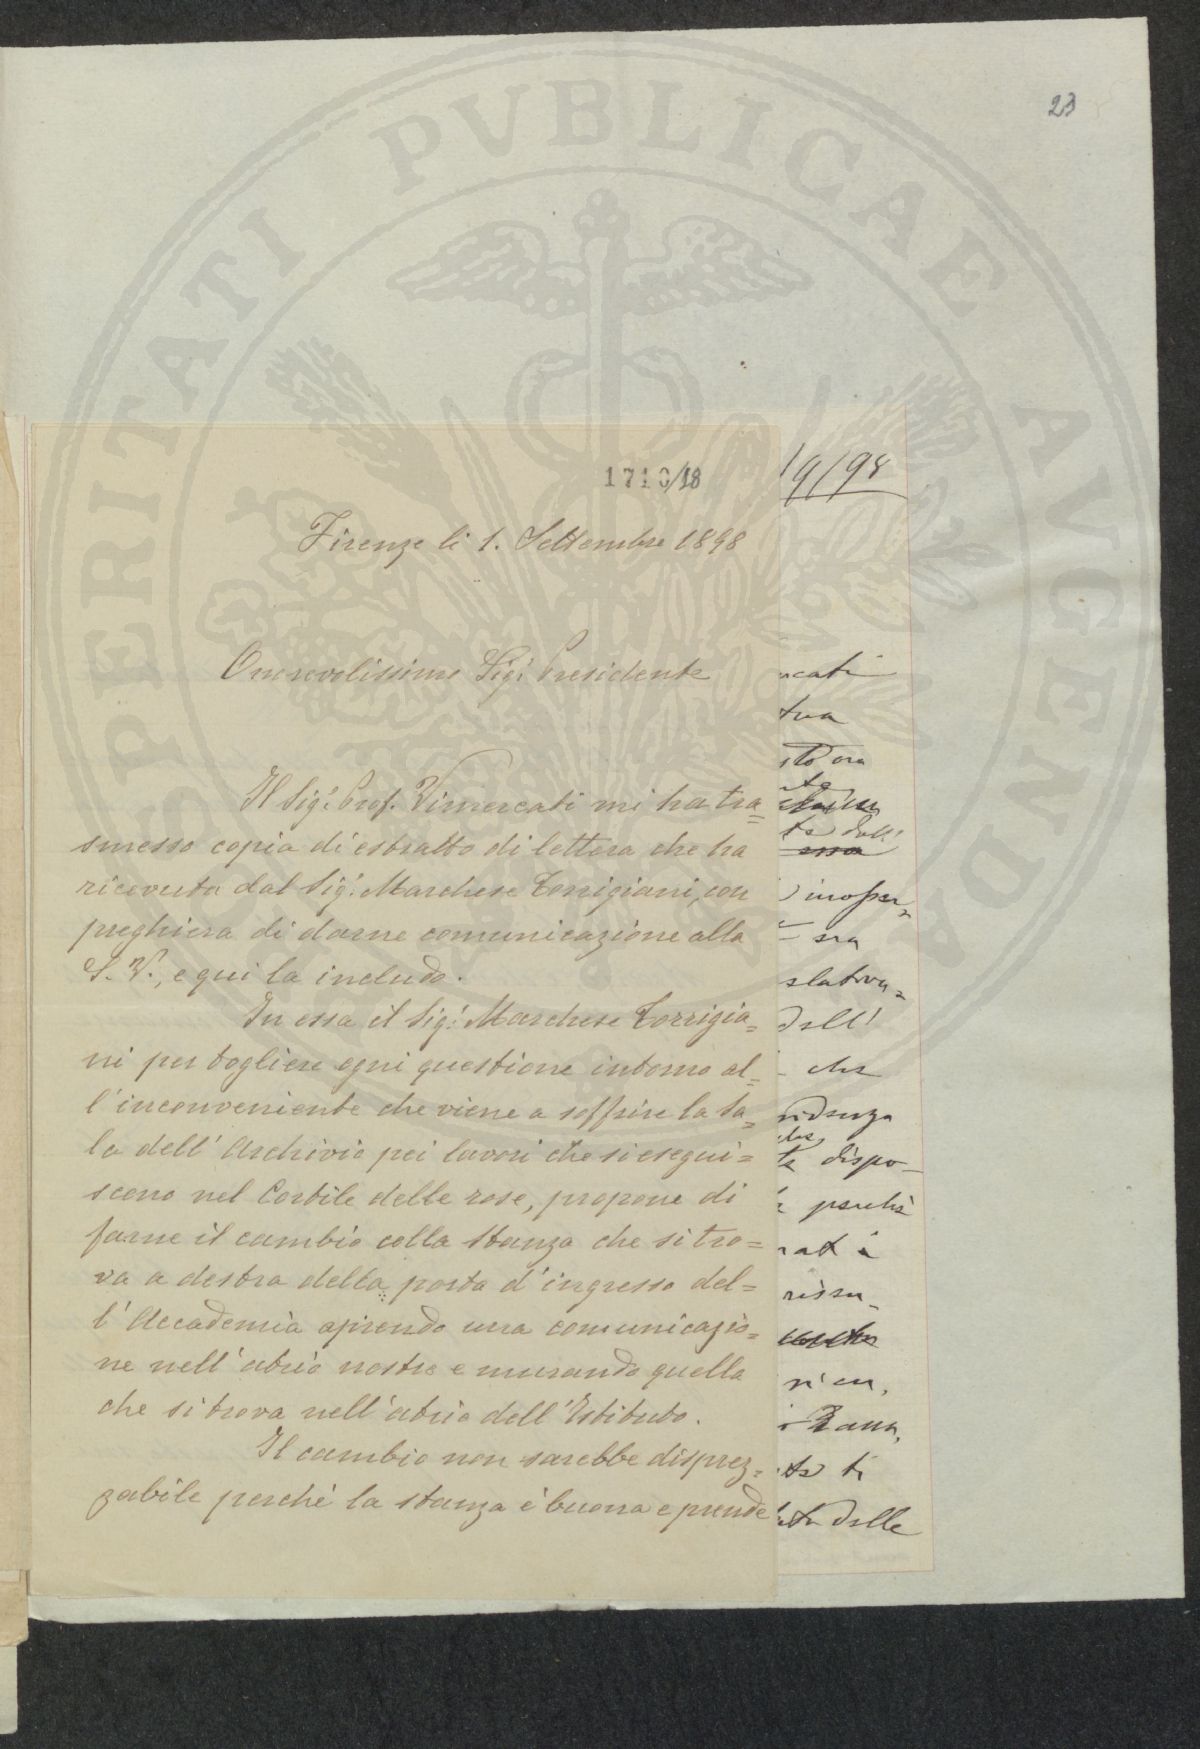 23
PROSPERITATI PVBLICAE AVGENDAE
1710/18
Firenze li 1. Settembre 1898
Onorevolissimo Sigr Presidente
Il Sigr Prof. Vimercati mi ha tra=
smesso copia di estratto di lettera che ha
ricevuta dal Sigr Marchese Torrigiani, con
preghiera di darne comunicazione alla
S. V., e qui la includo.
In essa il Sigr Marchese Torrigia=
ni per togliere ogni questione intorno al=
l'inconveniente che viene a soffrire la Sa=
la dell'Archivio pei lavori che si esegui=
scono nel Cortile delle rose, propone di
farne il cambio colla stanza che si tro=
va a destra della porta d'ingresso del=
l'Accademia aprendo una comunicazio=
ne nell'atrio nostro e murando quella
che si trova nell'atrio dell'Istituto.
Il cambio non sarebbe disprez=
zabile perché la stanza è buona e prende
9/98
cati
tua
sto ora
dall'
essa
inoper=
era
slativa=
dell'
che
sidenza
dispo-
perchè
rat i
rissu-
si en,
ta ti
delle